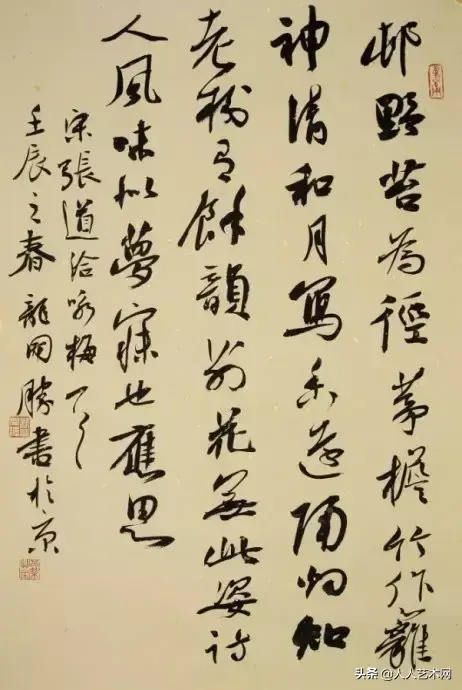 邨野苔為徑茅檐竹作籬
神清和月寫香遠隔烟知
老樹有餘韻别花無此姿詩
人風味似夢寐也應思
宋張道洽咏梅
壬辰之春龍開勝書於京
头条 @人人艺术网